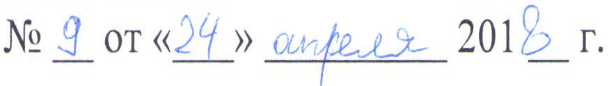 № 9 от «24» апреля 2018 г.